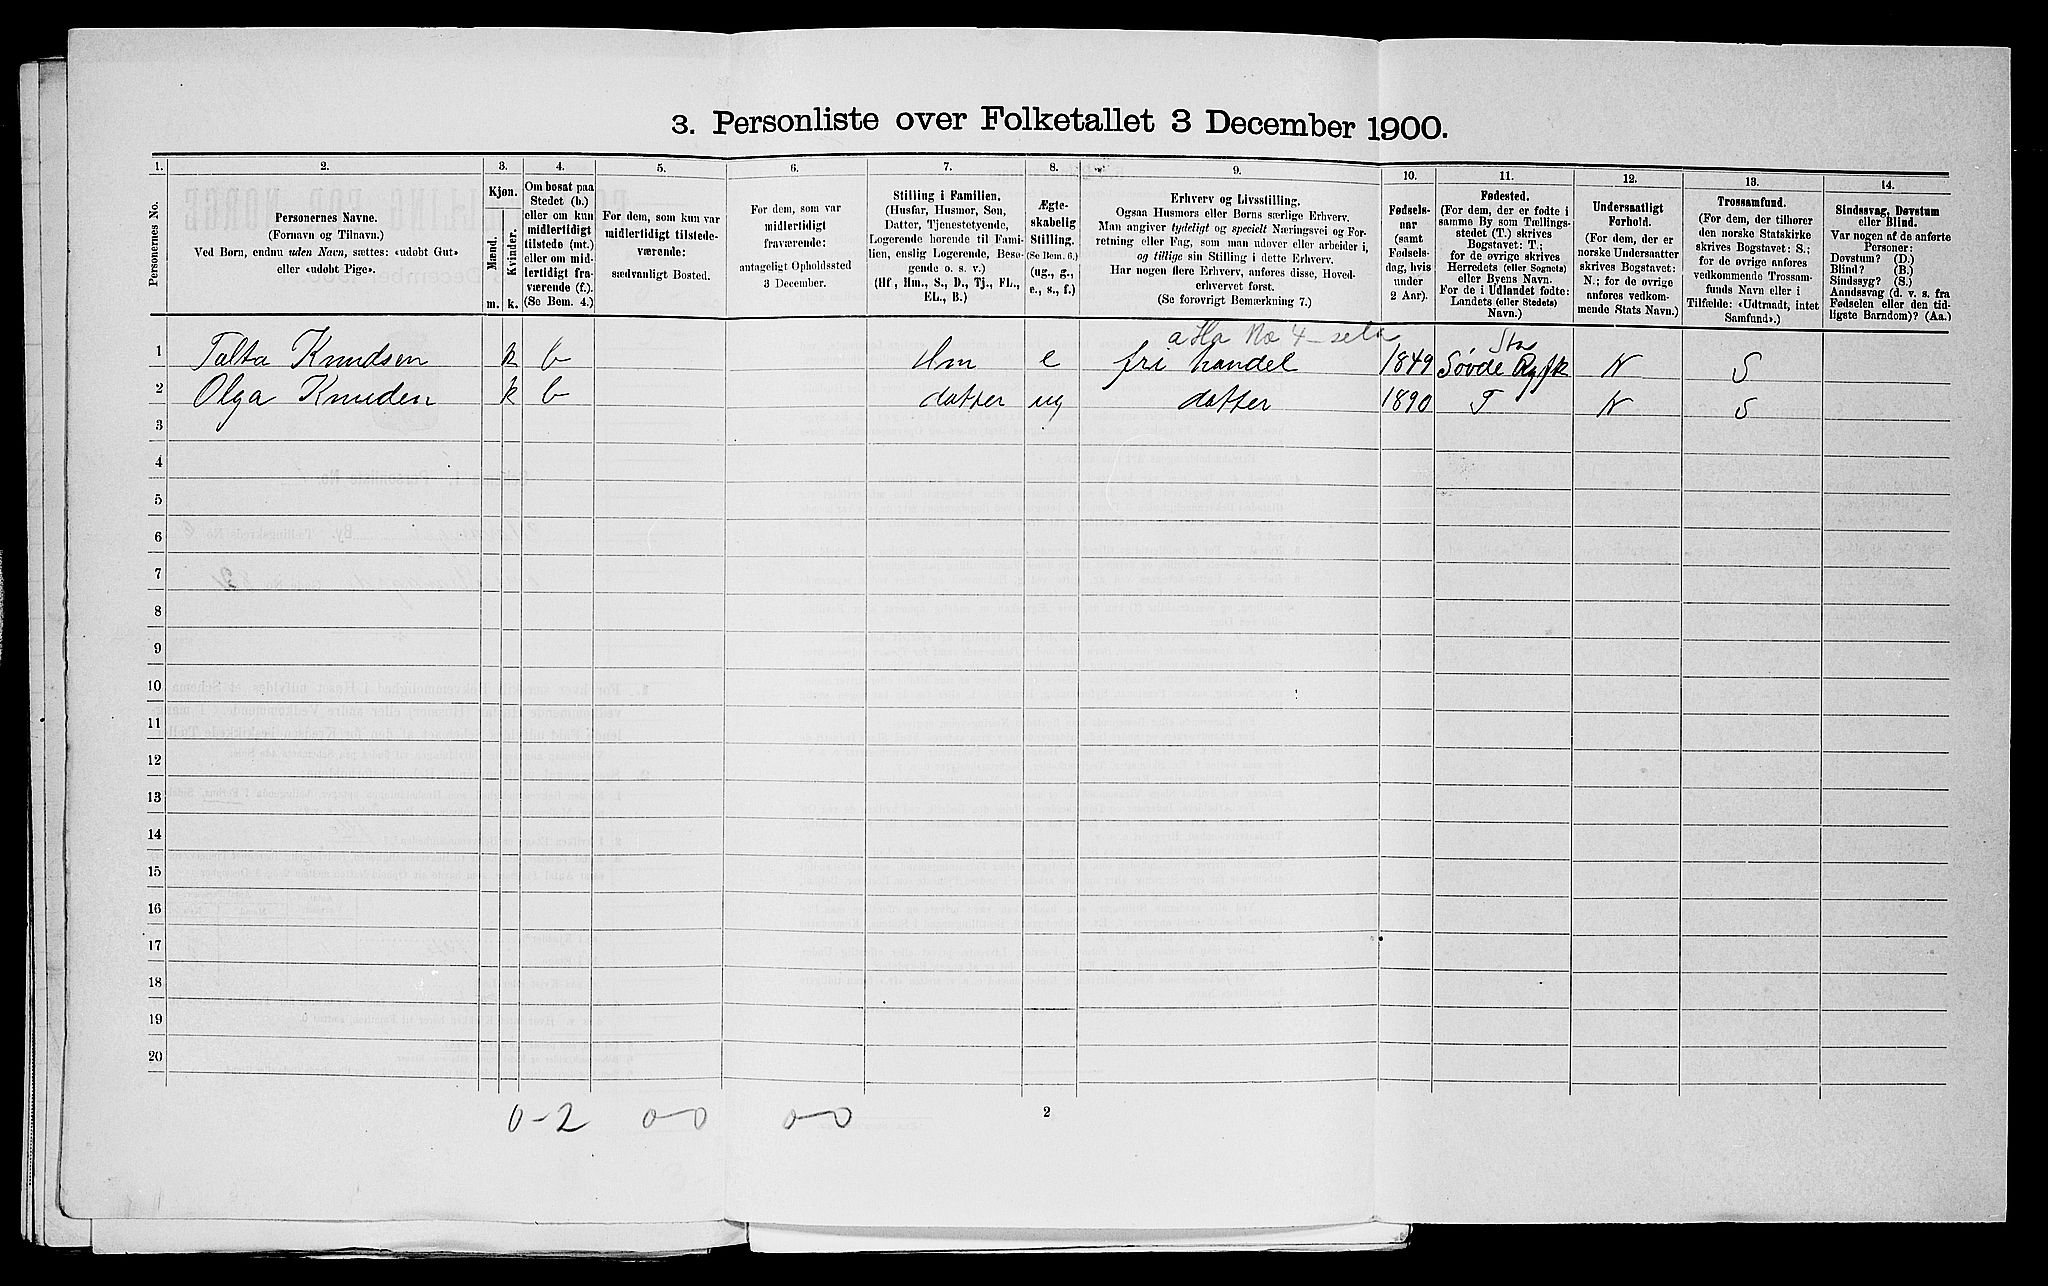 3. Personliste over Folketallet 3 December 1900.
1. 2. 3. 4. 5. 6. 7. 8. 9. 10. 11. 12. 13. 14.
Personernes No.
Personernes Navne.
(Fornavn og Tilnavn.)
Ved Børn, endnu uden Navn, sættes: «udøbt Gut»
eller «udøbt Pige».
Kjøn.
Mænd.
Kvinder.
m. k.
Om bosat paa
Stedet (b.)
eller om kun
midlertidigt
tilstede (mt.)
eller om mid-
lertidigt fra-
værende (f.).
(Se Bem. 4.)
For dem, som kun var
midlertidigt tilstede-
værende:
sædvanligt Bosted.
For dem, som var
midlertidigt
fraværende:
antageligt Opholdssted
3 December.
Stilling i Familien.
(Husfar, Husmor, Søn,
Datter, Tjenestetyende,
Logerende hørende til Fami-
lien, enslig Logerende, Besø-
gende o. s. v.)
(Hf, Hm., S., D., Tj., FL.,
EL., B.)
Ægte-
skabelig
Stilling.
(Se Bem. 6.)
(ug., g.,
e., s., f.)
Erhverv og Livsstilling.
Ogsaa Husmors eller Børns særlige Erhverv.
Man angiver tydeligt og specielt Næringsvei og For-
retning eller Fag, som man udøver eller arbeider i,
og tillige sin Stilling i dette Erhverv.
Har nogen flere Erhverv, anføres disse, Hoved-
erhvervet først.
(Se forøvrigt Bemærkning 7.)
Fødsels-
aar
(samt
Fødsels-
dag, hvis
under
2 Aar).
Fødested.
(For dem, der er fødte i
samme By som Tællings-
stedet (T.) skrives
Bogstavet: T.;
for de øvrige skrives
Herredets (eller Sognets)
eller Byens Navn.
For de i Udlandet fødte:
Landets (eller Stedets)
Navn.)
Undersaatligt
Forhold.
(For dem, der er
norske Undersaatter
skrives Bogstavet:
N.; for de øvrige
anføres vedkom-
mende Stats Navn.)
Trossamfund.
(For dem, der tilhører
den norske Statskirke
skrives Bogstavet: S.;
for de øvrige anføres
vedkommende Trossam-
funds Navn eller i
Tilfælde: «Udtraadt, intet
Samfund».)
Sindssvag, Døvstum
eller Blind.
Var nogen af de anførte
Personer:
Døvstum? (D.)
Blind? (B.)
Sindssyg? (S.)
Aandssvag (d. v. s. fra
Fødselen eller den tid-
ligste Barndom)? (Aa.)
1 Talta Knudsen k b Hm e fri handel 1849 Søvde Ryfk N S
2 Olga Knuden k b datter ug datter 1890 T N S
3
4
5
6
7
8
9
10
11
12
13
14
15
16
17
18
19
20
0-2 0-0 0-0
2